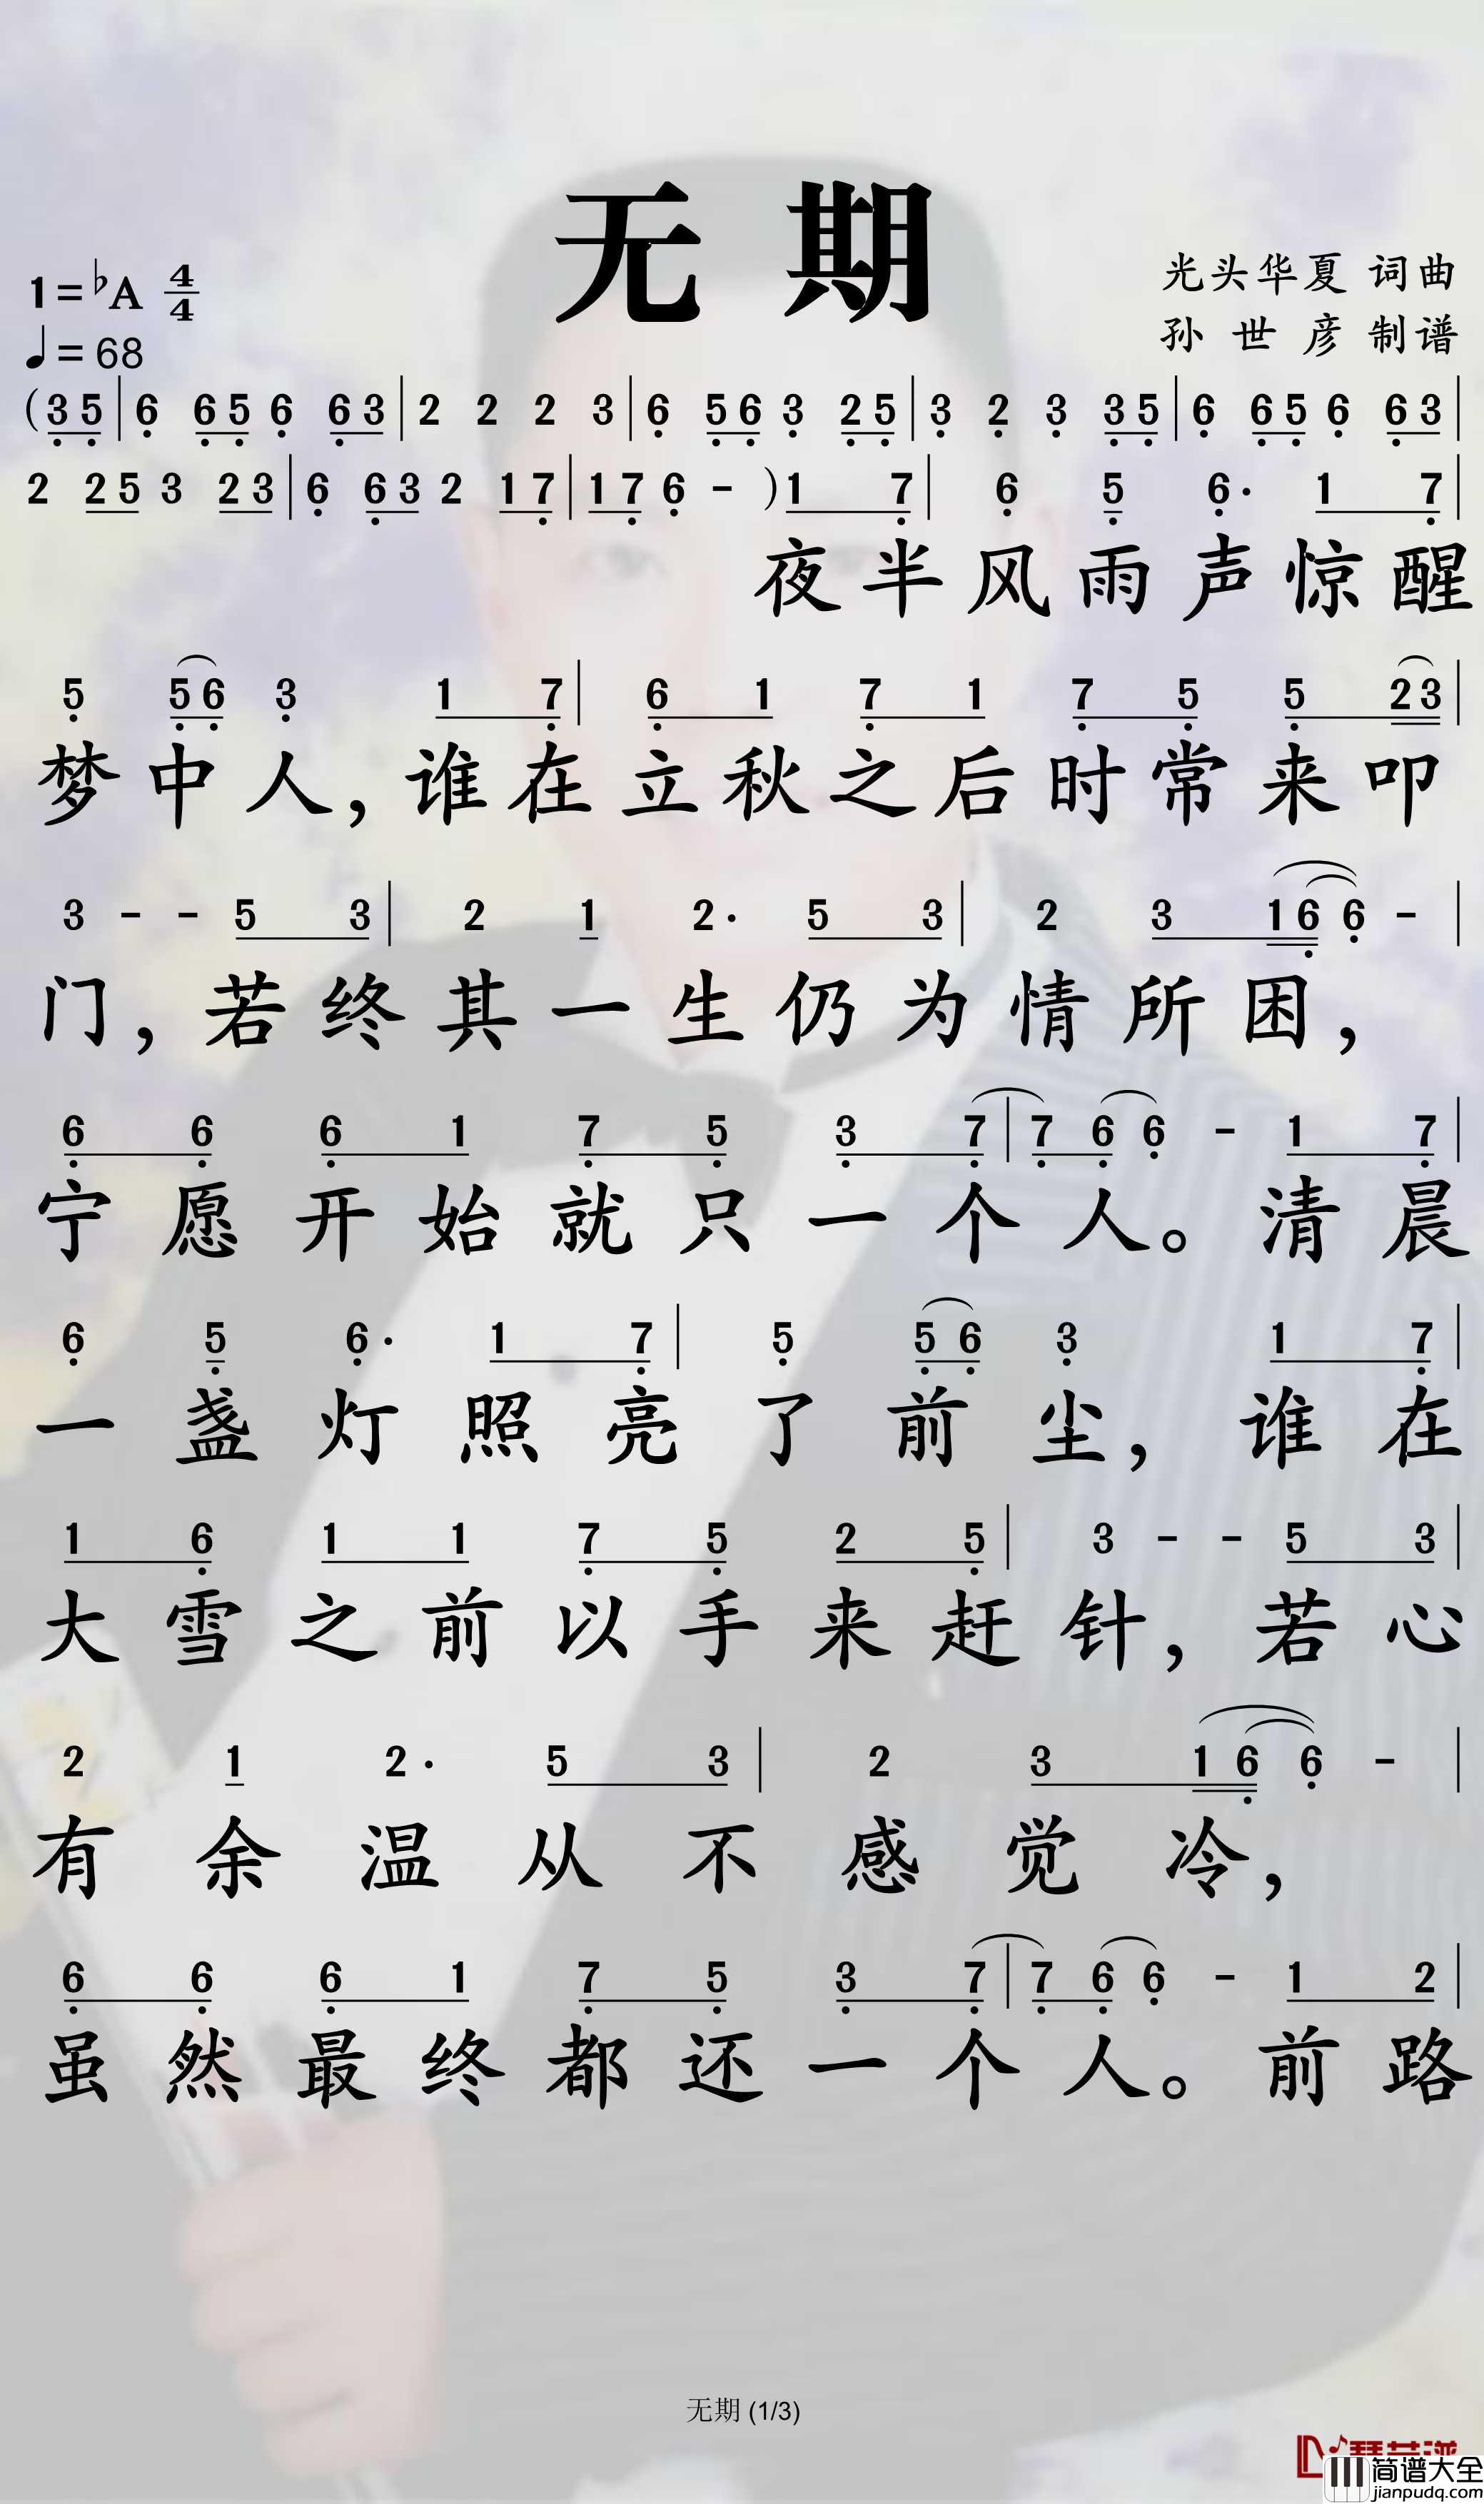 无期
1=♭A 4/4
♩=68
光头华夏 词曲
孙世彦 制谱
(3 5 | 6 6 5 6 6 3 | 2 2 2 3 | 6 5 6 3 2 5 | 3 2 3 3 5 | 6 6 5 6 6 3 |
2 2 5 3 2 3 | 6 6 3 2 1 7 | 1 7 6 - ) 1 7 | 6 5 6· 1 7 |
夜半风雨声惊醒
5 5 6 3 1 7 | 6 1 7 1 7 5 5 2 3 |
梦中人,谁在立秋之后时常来叩
3 - - 5 3 | 2 1 2· 5 3 | 2 3 1 6 6 - |
门,若终其一生仍为情所困,
6 6 6 1 7 5 3 7 | 7 6 6 - 1 7 |
宁愿开始就只一个人。清晨
6 5 6· 1 7 | 5 5 6 3 1 7 |
一盏灯照亮了前尘,谁在
1 6 1 1 7 5 2 5 | 3 - - 5 3 |
大雪之前以手来赶针,若心
2 1 2· 5 3 | 2 3 1 6 6 - |
有余温从不感觉冷,
6 6 6 1 7 5 3 7 | 7 6 6 - 1 2 |
虽然最终都还一个人。前路
无期 (1/3)
简谱大全
jianpudq.com